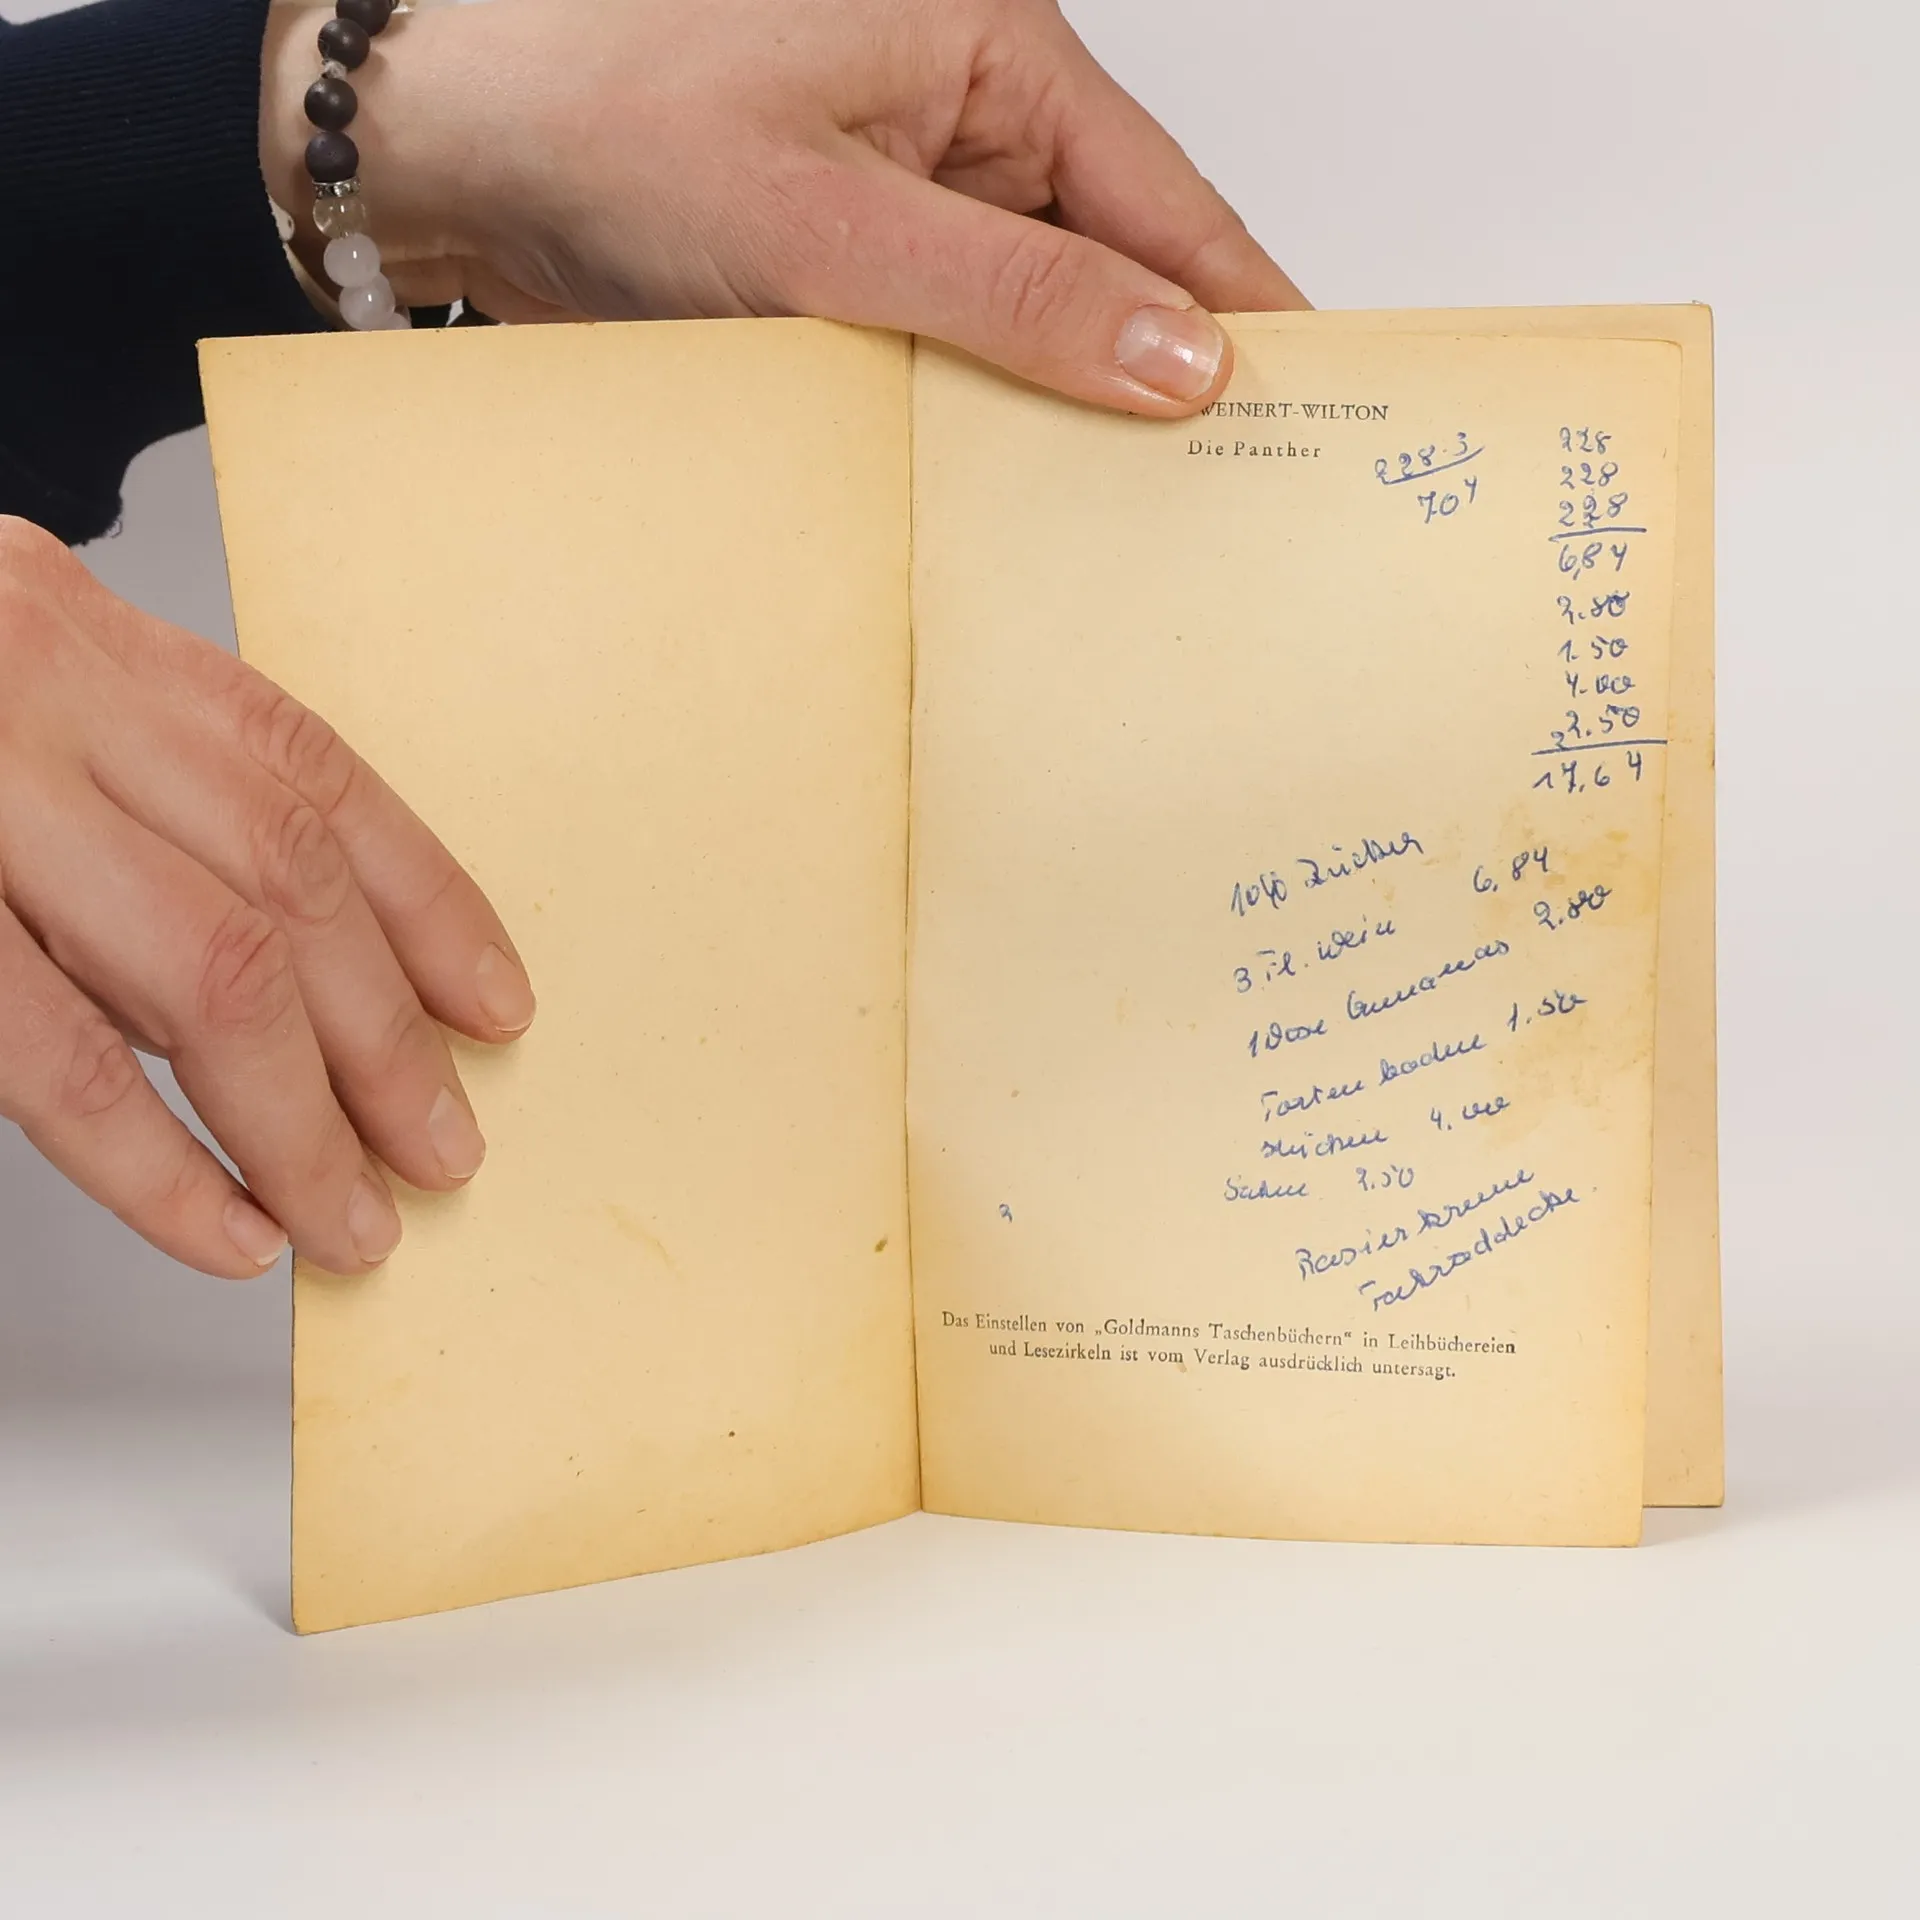 WEINERT-WILTON
Die Panther
228·3
704
228
228
228
6,84
2.80
1.50
4.00
2.50
17,64
Zucker
3 Fl. Wein 6,84
1 Dose Annanas 2.80
Tortenboden 1.50
4.00
Sahne 2.50
Rasierkreme
Fahraddecke
Das Einstellen von „Goldmanns Taschenbüchern“ in Leihbüchereien
und Lesezirkeln ist vom Verlag ausdrücklich untersagt.